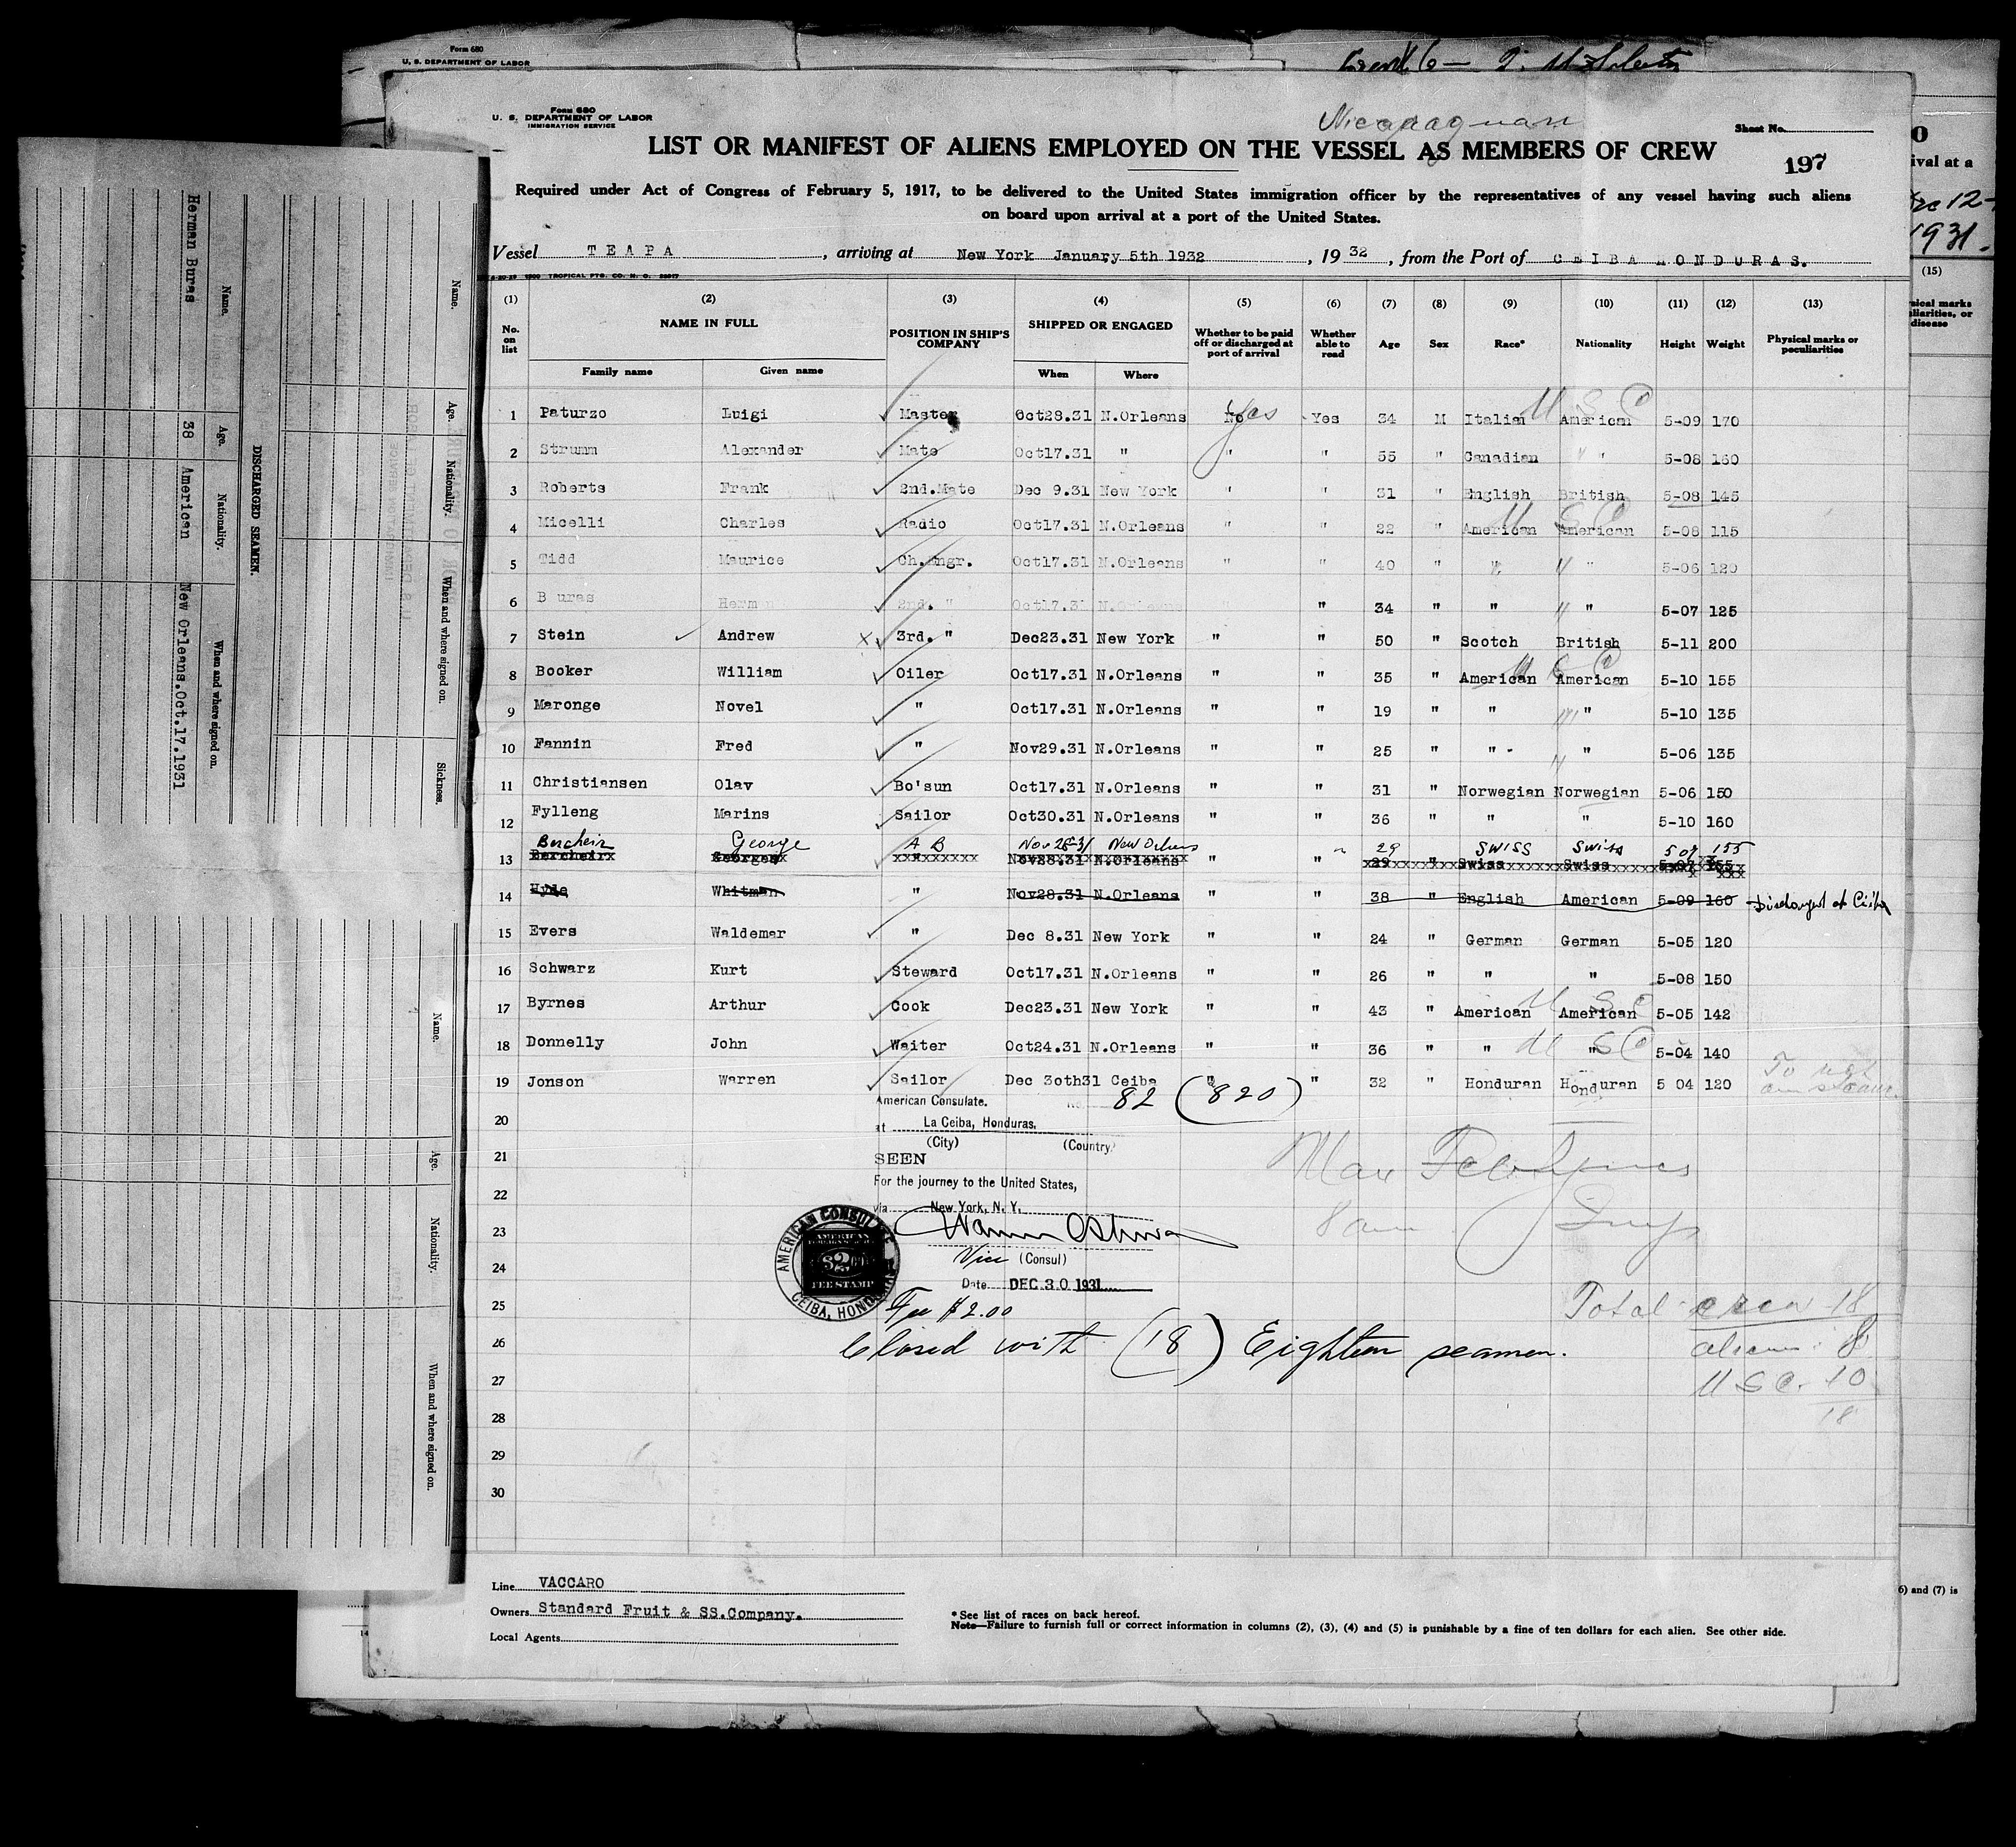 Form 680
U. S. DEPARTMENT OF LABOR
Form 680
U. S. DEPARTMENT OF LABOR
IMMIGRATION SERVICE
Nicaraguan
Sheet No.
LIST OR MANIFEST OF ALIENS EMPLOYED ON THE VESSEL AS MEMBERS OF CREW
197
Required under Act of Congress of February 5, 1917, to be delivered to the United States immigration officer by the representatives of any vessel having such aliens
on board upon arrival at a port of the United States.
Vessel TEAPA, arriving at New York January 5th 1932, 1932, from the Port of CEIBA HONDURAS.
(1) (2) (3) (4) (5) (6) (7) (8) (9) (10) (11) (12) (13)
No. on list NAME IN FULL POSITION IN SHIP'S COMPANY SHIPPED OR ENGAGED Whether to be paid off or discharged at port of arrival Whether able to read Age Sex Race* Nationality Height Weight Physical marks or peculiarities
Family name Given name When Where
1 Paturzo Luigi Master Oct28.31 N.Orleans No Yes Yes 34 M Italian American U S C 5-09 170
2 Strumm Alexander Mate Oct17.31 " " " 55 " Canadian " 5-08 160
3 Roberts Frank 2nd.Mate Dec 9.31 New York " " 31 " English British 5-08 145
4 Micelli Charles Radio Oct17.31 N.Orleans " " 22 " American American U S C 5-08 115
5 Tidd Maurice Ch.Engr. Oct17.31 N.Orleans " " 40 " " " 5-06 120
6 Buras Herm 2nd. " Oct17.31 N.Orleans " 34 " " " 5-07 125
7 Stein Andrew x 3rd. " Dec23.31 New York " " 50 " Scotch British 5-11 200
8 Booker William Oiler Oct17.31 N.Orleans " " 35 " American American U S C 5-10 155
9 Maronge Novel " Oct17.31 N.Orleans " " 19 " " " 5-10 135
10 Fannin Fred " Nov29.31 N.Orleans " " 25 " " " 5-06 135
11 Christiansen Olav Bo'sun Oct17.31 N.Orleans " " 31 " Norwegian Norwegian 5-06 150
12 Fylleng Marins Sailor Oct30.31 N.Orleans " " 36 " " " 5-10 160
George A B Nov 28-31 New Orleans 29 SWISS Swiss 5 07 155
13 Georges Nov28.31 N.Orleans " " 29 " Swiss Swiss 5-07 155
14 Hyde Whitman " Nov28.31 N.Orleans " " 38 " English American 5-09 160 Discharged at Ceiba
15 Evers Waldemar " Dec 8.31 New York " " 24 " German German 5-05 120
16 Schwarz Kurt Steward Oct17.31 N.Orleans " " 26 " " " 5-08 150
17 Byrnes Arthur Cook Dec23.31 New York " " 43 " American American U S C 5-05 142
18 Donnelly John Waiter Oct24.31 N.Orleans " " 36 " " " U S C 5-04 140
19 Jonson Warren Sailor Dec 30th31 Ceiba " " 32 " Honduran Honduran 5 04 120
American Consulate. No. 82 (820)
20
at La Ceiba, Honduras.
(City) (Country)
21
SEEN
For the journey to the United States,
22
via New York, N. Y.
23
Vice (Consul)
24
Date DEC 30 1931
AMERICAN CONSULATE
AMERICAN
$2
FEE STAMP
CEIBA, HONDURAS
25
Fee $2.00
Total crew 18
26
Closed with (18) Eighteen seamen.
aliens 8
27
U S C. 10
18
28
29
30
Line VACCARO
Owners Standard Fruit & SS.Company.
Local Agents
* See list of races on back hereof.
Note—Failure to furnish full or correct information in columns (2), (3), (4) and (5) is punishable by a fine of ten dollars for each alien. See other side.
DISCHARGED SEAMEN.
Name. Age. Nationality. When and where signed on.
Herman Buras 38 American New Orleans.Oct.17.1931
Name. Age. Nationality. When and where signed on. Sickness.
Name. Age. Nationality. When and where signed on.
ival at a
Dec 12-
1931.
(15)
6) and (7) is